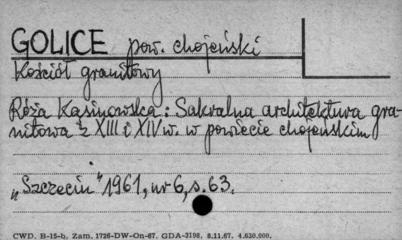 GOLICE pow. chojeński
Kościół granitowy
Róża Kąsinowska: Sakralna architektura gra-
nitowa z XIII i XIV w. w powiecie chojeńskim
„Szczecin" 1961, nr 6, s. 63.
CWD. B-15-b, Zam. 1726-DW-On-67. GDA-3198. 8.11.67. 4.630.000.